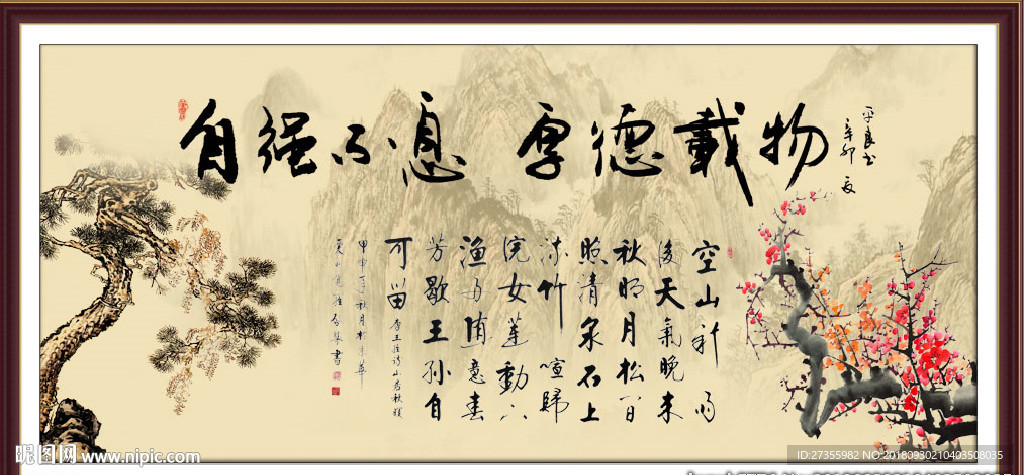 自强不息 厚德载物
辛卯夏
空山新雨
後天氣晚来
秋明月松间
照清泉石上
流竹 喧歸
浣女蓮動下
渔舟随意春
芳歇王孫自
可留
甲申年秋月於京華
昵图网 www.nipic.com
ID:27355982 NO:20180930210403508035